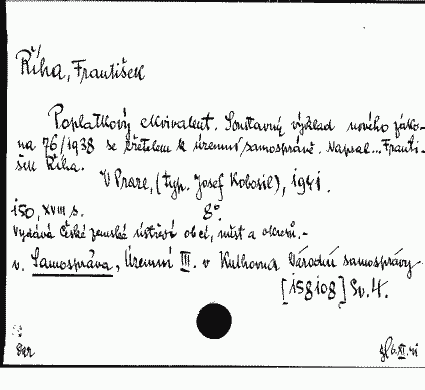 Říha, František
Poplatkový ekvivalent. Soustavný výklad nového záko-
na 76/1938 se zřetelem k územní samosprávě. Napsal... Franti-
šek Říha.
V Praze, (typ. Josef Kobosil), 1941.
150, XVIII s. 8°.
Vydává České zemské ústředí obcí, měst a okresů.-
v. Samospráva, Územní III. v Knihovna Národní samosprávy
[158108] Sv. 4.